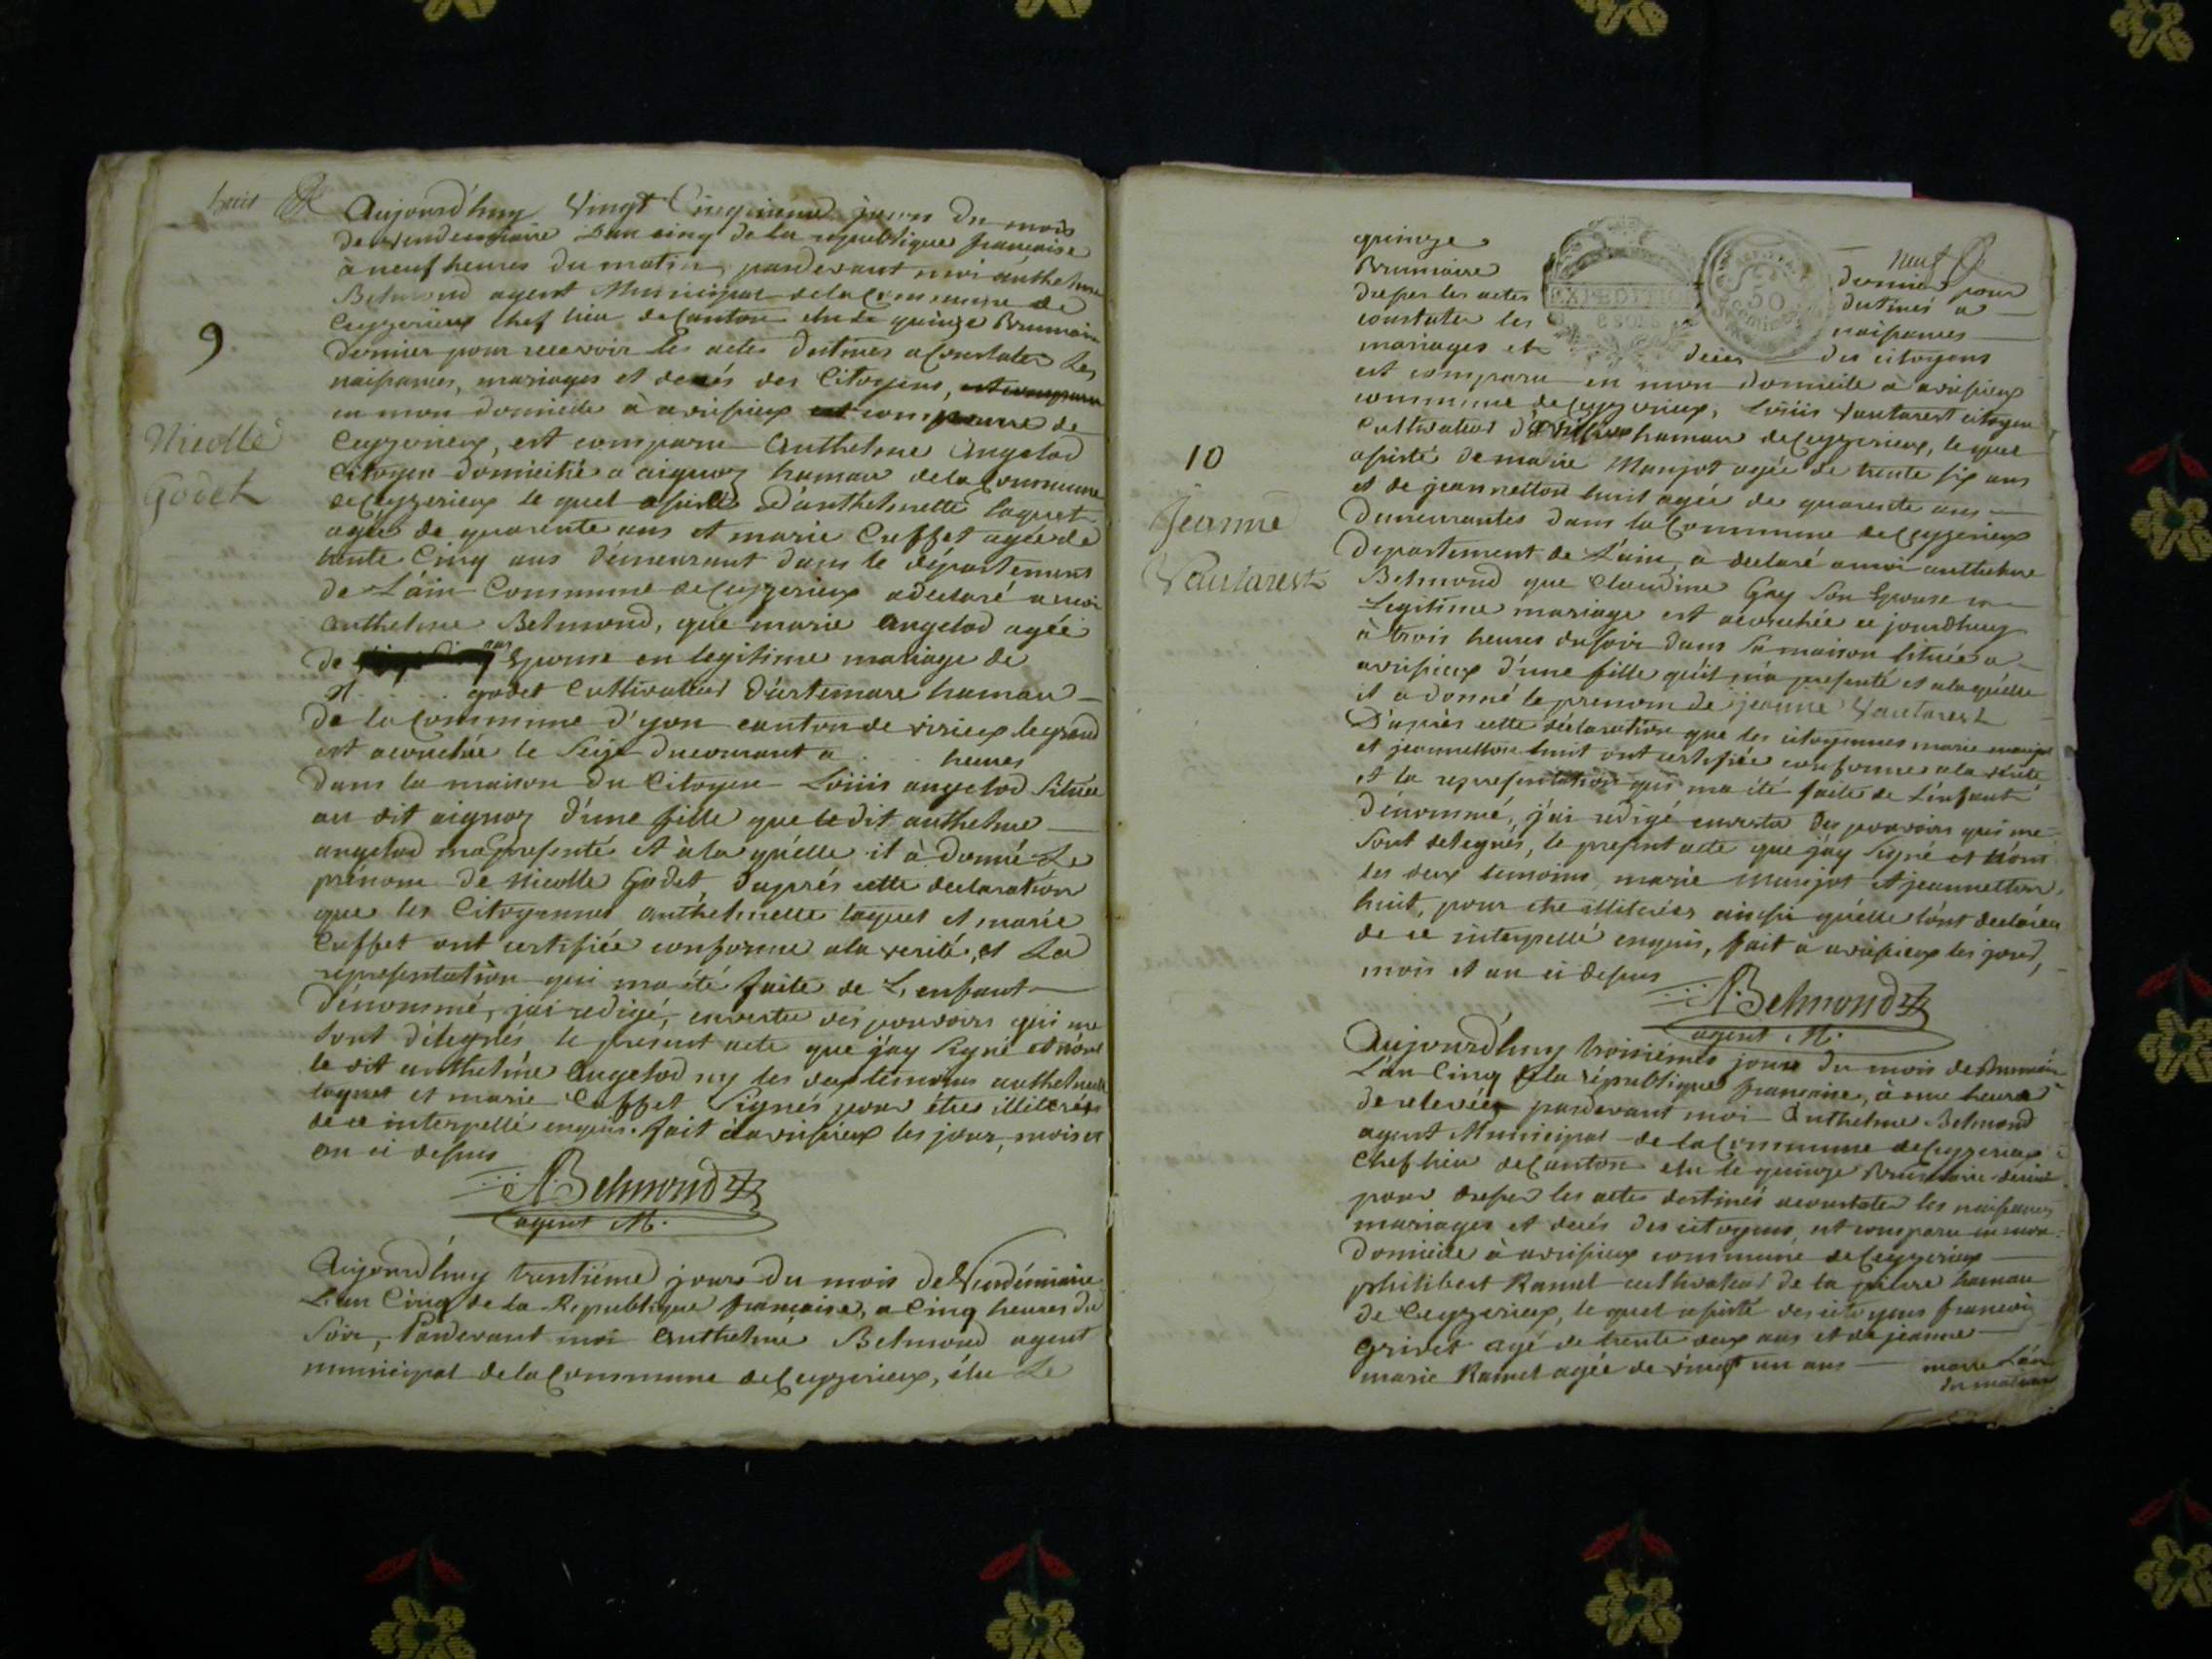 huit
Aujourd'huy Vingt Cinquieme jours du mois
de vendemiaire L'an cinq de la republique francaise
à neuf heures du matin, pardevant moi anthelme
Belmond agent Municipal de la Commune de
Ceyzerieux Chef lieu de Canton elu le quinze Brumaire
dernier pour recevoir les actes destinés a Constater les
naissances, mariages et decés des Citoyens, est comparu
en mon domicile à avrissieux est commune de
Ceyzerieux, est comparu Anthelme Angelod
Citoyen domicilié a aignoz hamau de la Commune
de Ceyzerieux le quel assisté d'anthelmette laquet
agée de quarente ans et marie Cuffet agée de
trente Cinq ans demeurant dans le département
de L'ain Commune de Ceyzerieux a declaré a moi
anthelme Belmond, que marie angelod agée
de ans Epouse en legitime mariage de
N. . . . . godet Cultivateur d'artemare hamau
de la Commune d'yon canton de virieux le grand
est acouchée le Seize du courant a . . heures
dans la maison du Citoyen Loüis angelod Située
au dit aignoz d'une fille que le dit anthelme
angelod ma presenté et à la quélle il à donné Le
prénom de Nicolle Godet, d'aprés cette declaration
que les Citoyennes anthelmette laquet et marie
Cuffet ont certifiée conforme a la verité, et La
representation qui ma été faite de L'enfant
dénommé, j'ai redigé, en vertu des pouvoirs qui me
sont délegués le present acte que j'ay signé et non
le dit anthelme Angelod ny les deux temoins anthelmette
laquet et marie Cuffet Signés pour étres illiterés
de ce interpellé enquis. fait à avrissieux les jour, mois et
an ci dessus
ABelmond
agent M.
9
Nicolle
Godet
Aujourd'huy trentiéme jours du mois de Vendémiaire
L'an Cinq de la Republique francaise, a Cinq heures du
Soir, Pardevant moi Anthelme Belmond agent
municipal de la Commune de Ceyzerieux, élu Le
neuf
quinze
Brumaire dernier pour
dresser les actes destinés a
constater les naissances
mariages et decés des citoyens
EXPEDITION
6 SOLS
50
est comparu en mon domicile a avrissieux
commune de Ceyzerieux, Loüis Vautarest citoyen
Cultivateur d'avrissieux hamau de Ceyzerieux, le quel
assisté de marie Manjot agée de trente six ans
et de jeannetton huit agée de quarente ans
demeurantes dans la Commune de Ceyzerieux
departement de L'ain, à declaré a moi anthelme
Belmond que Claudine Gay Son Epouse en
Legitime mariage est acouchée ce jourdhuy
à trois heures du soir dans sa maison située a
avrissieux d'une fille qu'il m'a presenté et a la quélle
il a donné le prenom de jeanne Vautarest
D'aprés cette déclaration que les citoyennes marie manjot
et jeannetton huit ont certifiée conforme a la vérité
et la representation qui ma été faite de L'enfant
dénommé, j'ai rédigé en vertu des pouvoirs qui me
sont delegués, le present acte que j'ay signé et non
les deux temoins, marie manjot et jeannetton
huit, pour étre illiterées ainssi qu'elle l'ont declarée
de ce interpellé enquis, fait à avrissieux les jour,
mois et an ci dessus
ABelmond
agent M.
10
Jeanne
Vautarest
Aujourd'huy troisiémes jour du mois de Brumaire
L'an Cinq de la république francaise, à une heure
de relevée pardevant moi Anthelme Belmond
agent Municipal de la Commune de Ceyzerieux
Chef lieu de Canton elu le quinze Brumaire dernier
pour dresser les actes destinés a constater les naissances
mariages et decés des citoyens est comparu en mon
domicile à avrissieux commune de Ceyzerieux
philibert Ramel cultivateur de la hamau
de Ceyzerieux, le quel assisté des citoyens francois
Grivet agé de trente deux ans et de jeanne
marie Ramel agée de vingt un ans